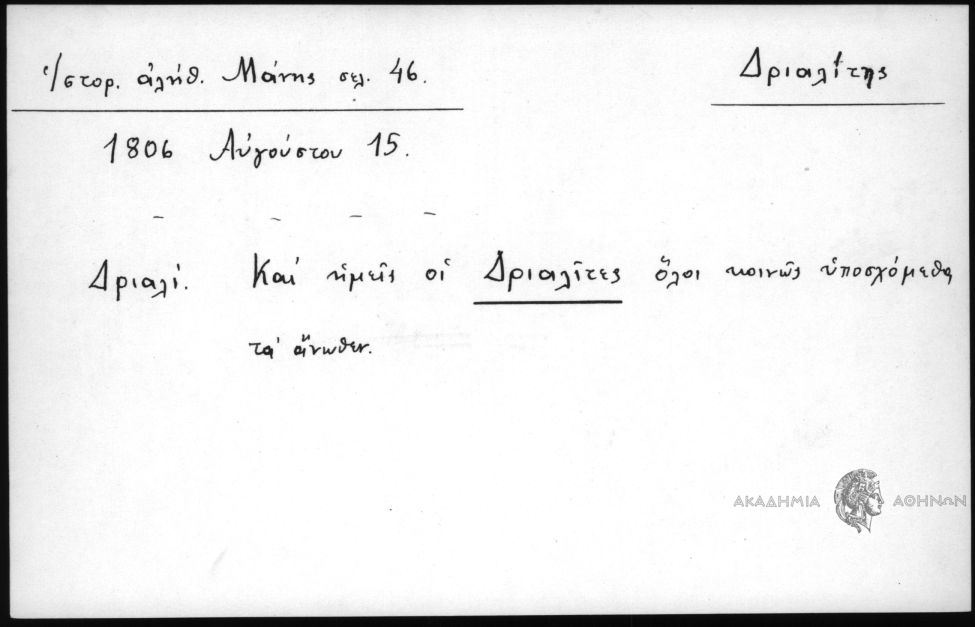 Ἱστορ. ἀλήθ. Μάνης σελ. 46.
Δριαλίτης
1806 Αὐγούστου 15.
Δριαλί. Καὶ ἡμεῖς οἱ Δριαλῖτες ὅλοι κοινῶς ὑποσχόμεθα
τὰ ἄνωθεν.
ΑΚΑΔΗΜΙΑ ΑΘΗΝΩΝ